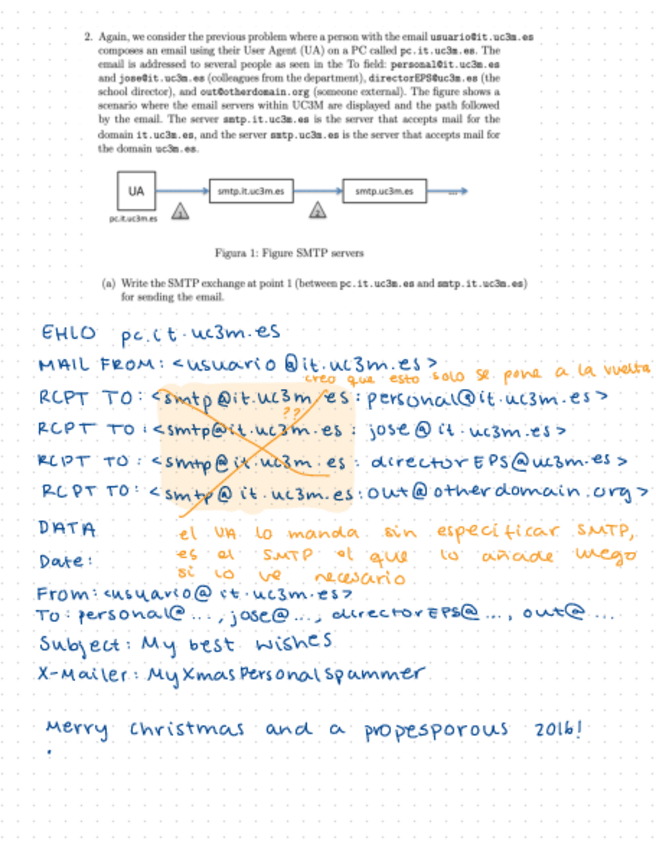 2. Again, we consider the previous problem where a person with the email usuario@it.uc3m.es
composes an email using their User Agent (UA) on a PC called pc.it.uc3m.es. The
email is addressed to several people as seen in the To field: personal@it.uc3m.es
and jose@it.uc3m.es (colleagues from the department), directorEPS@uc3m.es (the
school director), and out@otherdomain.org (someone external). The figure shows a
scenario where the email servers within UC3M are displayed and the path followed
by the email. The server smtp.it.uc3m.es is the server that accepts mail for the
domain it.uc3m.es, and the server smtp.uc3m.es is the server that accepts mail for
the domain uc3m.es.
UA smtp.it.uc3m.es smtp.uc3m.es ...
pc.it.uc3m.es 1 2
Figura 1: Figure SMTP servers
(a) Write the SMTP exchange at point 1 (between pc.it.uc3m.es and smtp.it.uc3m.es)
for sending the email.
EHLO pc.it.uc3m.es
MAIL FROM: <usuario@it.uc3m.es>
creo que esto solo se pone a la vuelta
RCPT TO: <smtp@it.uc3m.es: personal@it.uc3m.es>
??
RCPT TO: <smtp@it.uc3m.es: jose@it.uc3m.es>
RCPT TO: <smtp@it.uc3m.es: directorEPS@uc3m.es>
RCPT TO: <smtp@it.uc3m.es:out@otherdomain.org>
DATA
el UA lo manda sin especificar SMTP,
Date:
es el SMTP el que lo añade luego
si lo ve necesario
From: <usuario@it.uc3m.es>
To: personal@..., jose@..., directorEPS@..., out@...
Subject: My best wishes
X-Mailer: MyXmasPersonalSpammer
Merry christmas and a propesporous 2016!
.